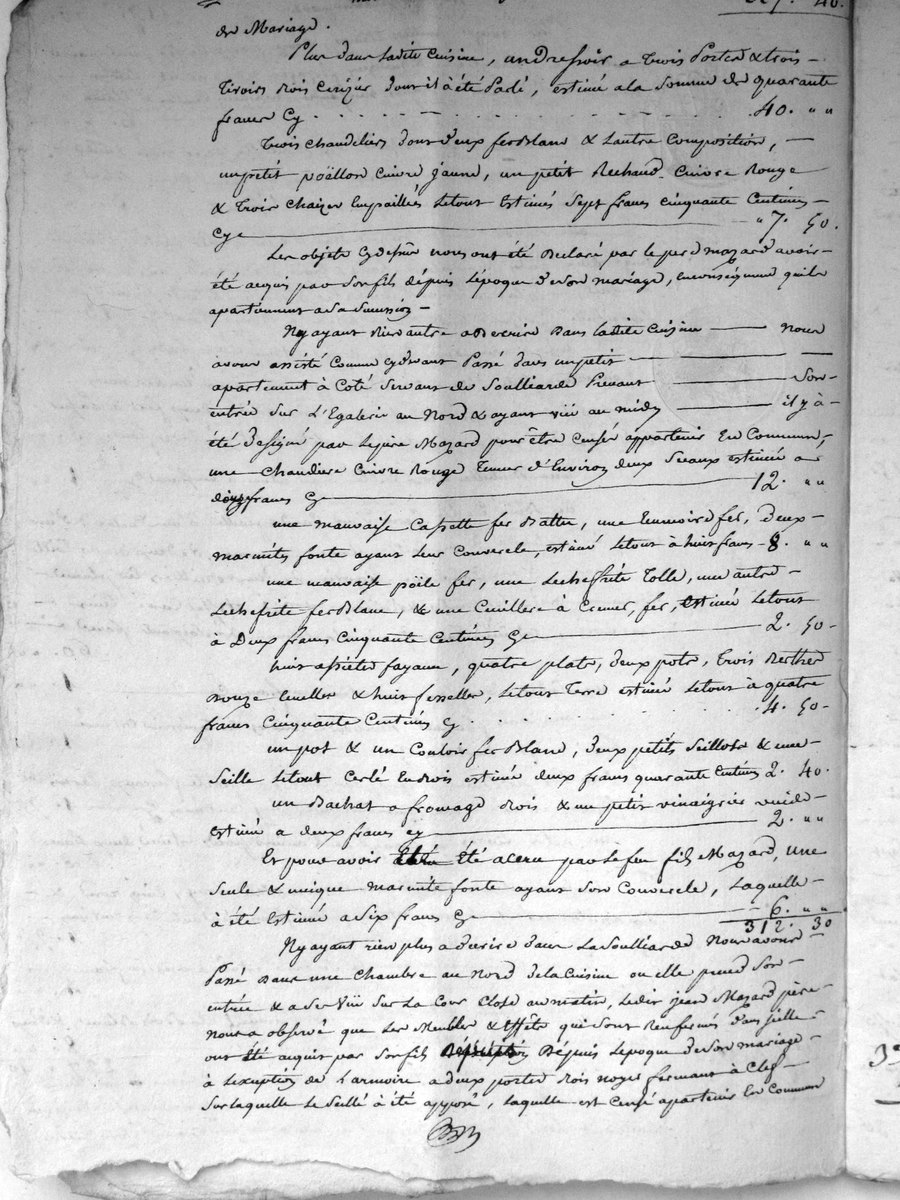 de Mariage.
Plus dans Ladite Cuisine, un Dressoir a Trois Portes & trois
Tiroirs Bois Cerizier dont il à été Parlé, estimé a la Somme de quarante
francs Cy 40. " "
Trois chandeliers dont deux fer Blanc & Lautre Composition,
un petit poëllon Cuivre jaune, un petit Rechaud Cuivre Rouge
& Trois Chaizes Empaillées Letout Estimés Sept francs Cinquante Centimes
Cy " 7. 50.
Les objets Cy dessus nous ont été Declaré par le pere Mazard avoir
été acquis par Son fils dépuis Lépoque de Son mariage,
apartiennent a Sa Succession
N'y ayant Rien autre a Décrire Dans Ladite Cuisine Nous
avons assisté Comme cy devant Passé dans un petit
apartement à Coté Servant de Soulliarde Prenant Son
entrée Sur L'Egalerie au Nord & ayant viü au midy il y à
été designé par Lepère Mazard pour être Censés appartenir En Commun,
une Chaudiere Cuivre Rouge Tenant d'Environ deux Seaux estimée a
douze francs Cy 12. " "
une mauvaise Cassette fer Battu, une fer, deux
marmites fonte ayant Leur Couvercle, estimé Letout à huit francs 8. " "
une mauvaise pöile fer, une Lechefrite Tolle, une autre
Lechefrite fer Blanc, & une Cuillere à Ecumer, fer, Estimée Letout
à Deux francs Cinquante Centimes Cy 2. 50
huit assiettes fayance, quatre plats, deux pots, Trois
& huit, Letout Terre estimée Letout à quatre
francs Cinquante Centimes Cy 4. 50
un pot & un Couloir fer Blanc, deux petits Seillots & une
Seille Letout Cerlé En Bois estimée deux francs quarante Centimes 2. 40.
un Bachat a fromage Bois & un petit vinaigrier vuide
estimé a deux francs cy 2. " "
Et pour avoir Eté aceru par Le feu fils Mazard, une
Seule & unique marmite fonte ayant Son Couvercle, Laquelle
à été Estimée a Six francs Cy 6. " "
312. 30
N'y ayant rien plus a décrire dans La Soulliarde Nous avons
Passé Dans une Chambre au Nord dela Cuisine ou elle prend Son
entrée & a Ses viü Sur La Cour Close au matin, Ledit jean Mazard père
Nous a observé que Les Meubles & Effets qui Sont Renfermés dans jcelle
ont été acquis par Son fils Dépuis Lepoque de Son mariage
à Lexeption de L'armoire a deux portes Bois noyer fermant à Clef
Sur laquelle Le Scellé à été apposé, Laquelle est Censé apartenir En Commun